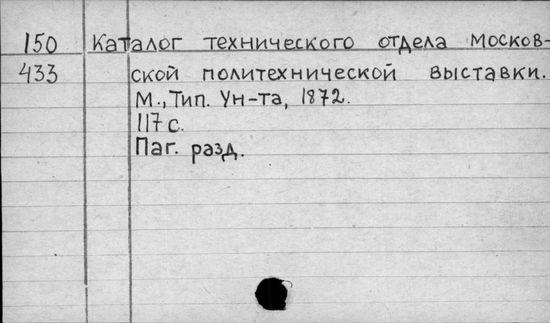 150 Каталог технического отдела Москов-
433 ской политехнической выставки.
М., Тип. Ун-та, 1872.
117 с.
Паг. разд.